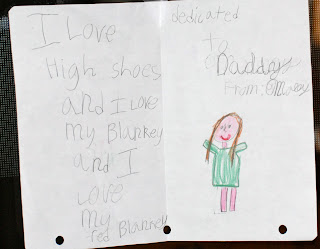 I Love
High Shoes
and I Love
my Blankey
and I
Love
My
red Blankey
dedicated
to
Daddy
From: